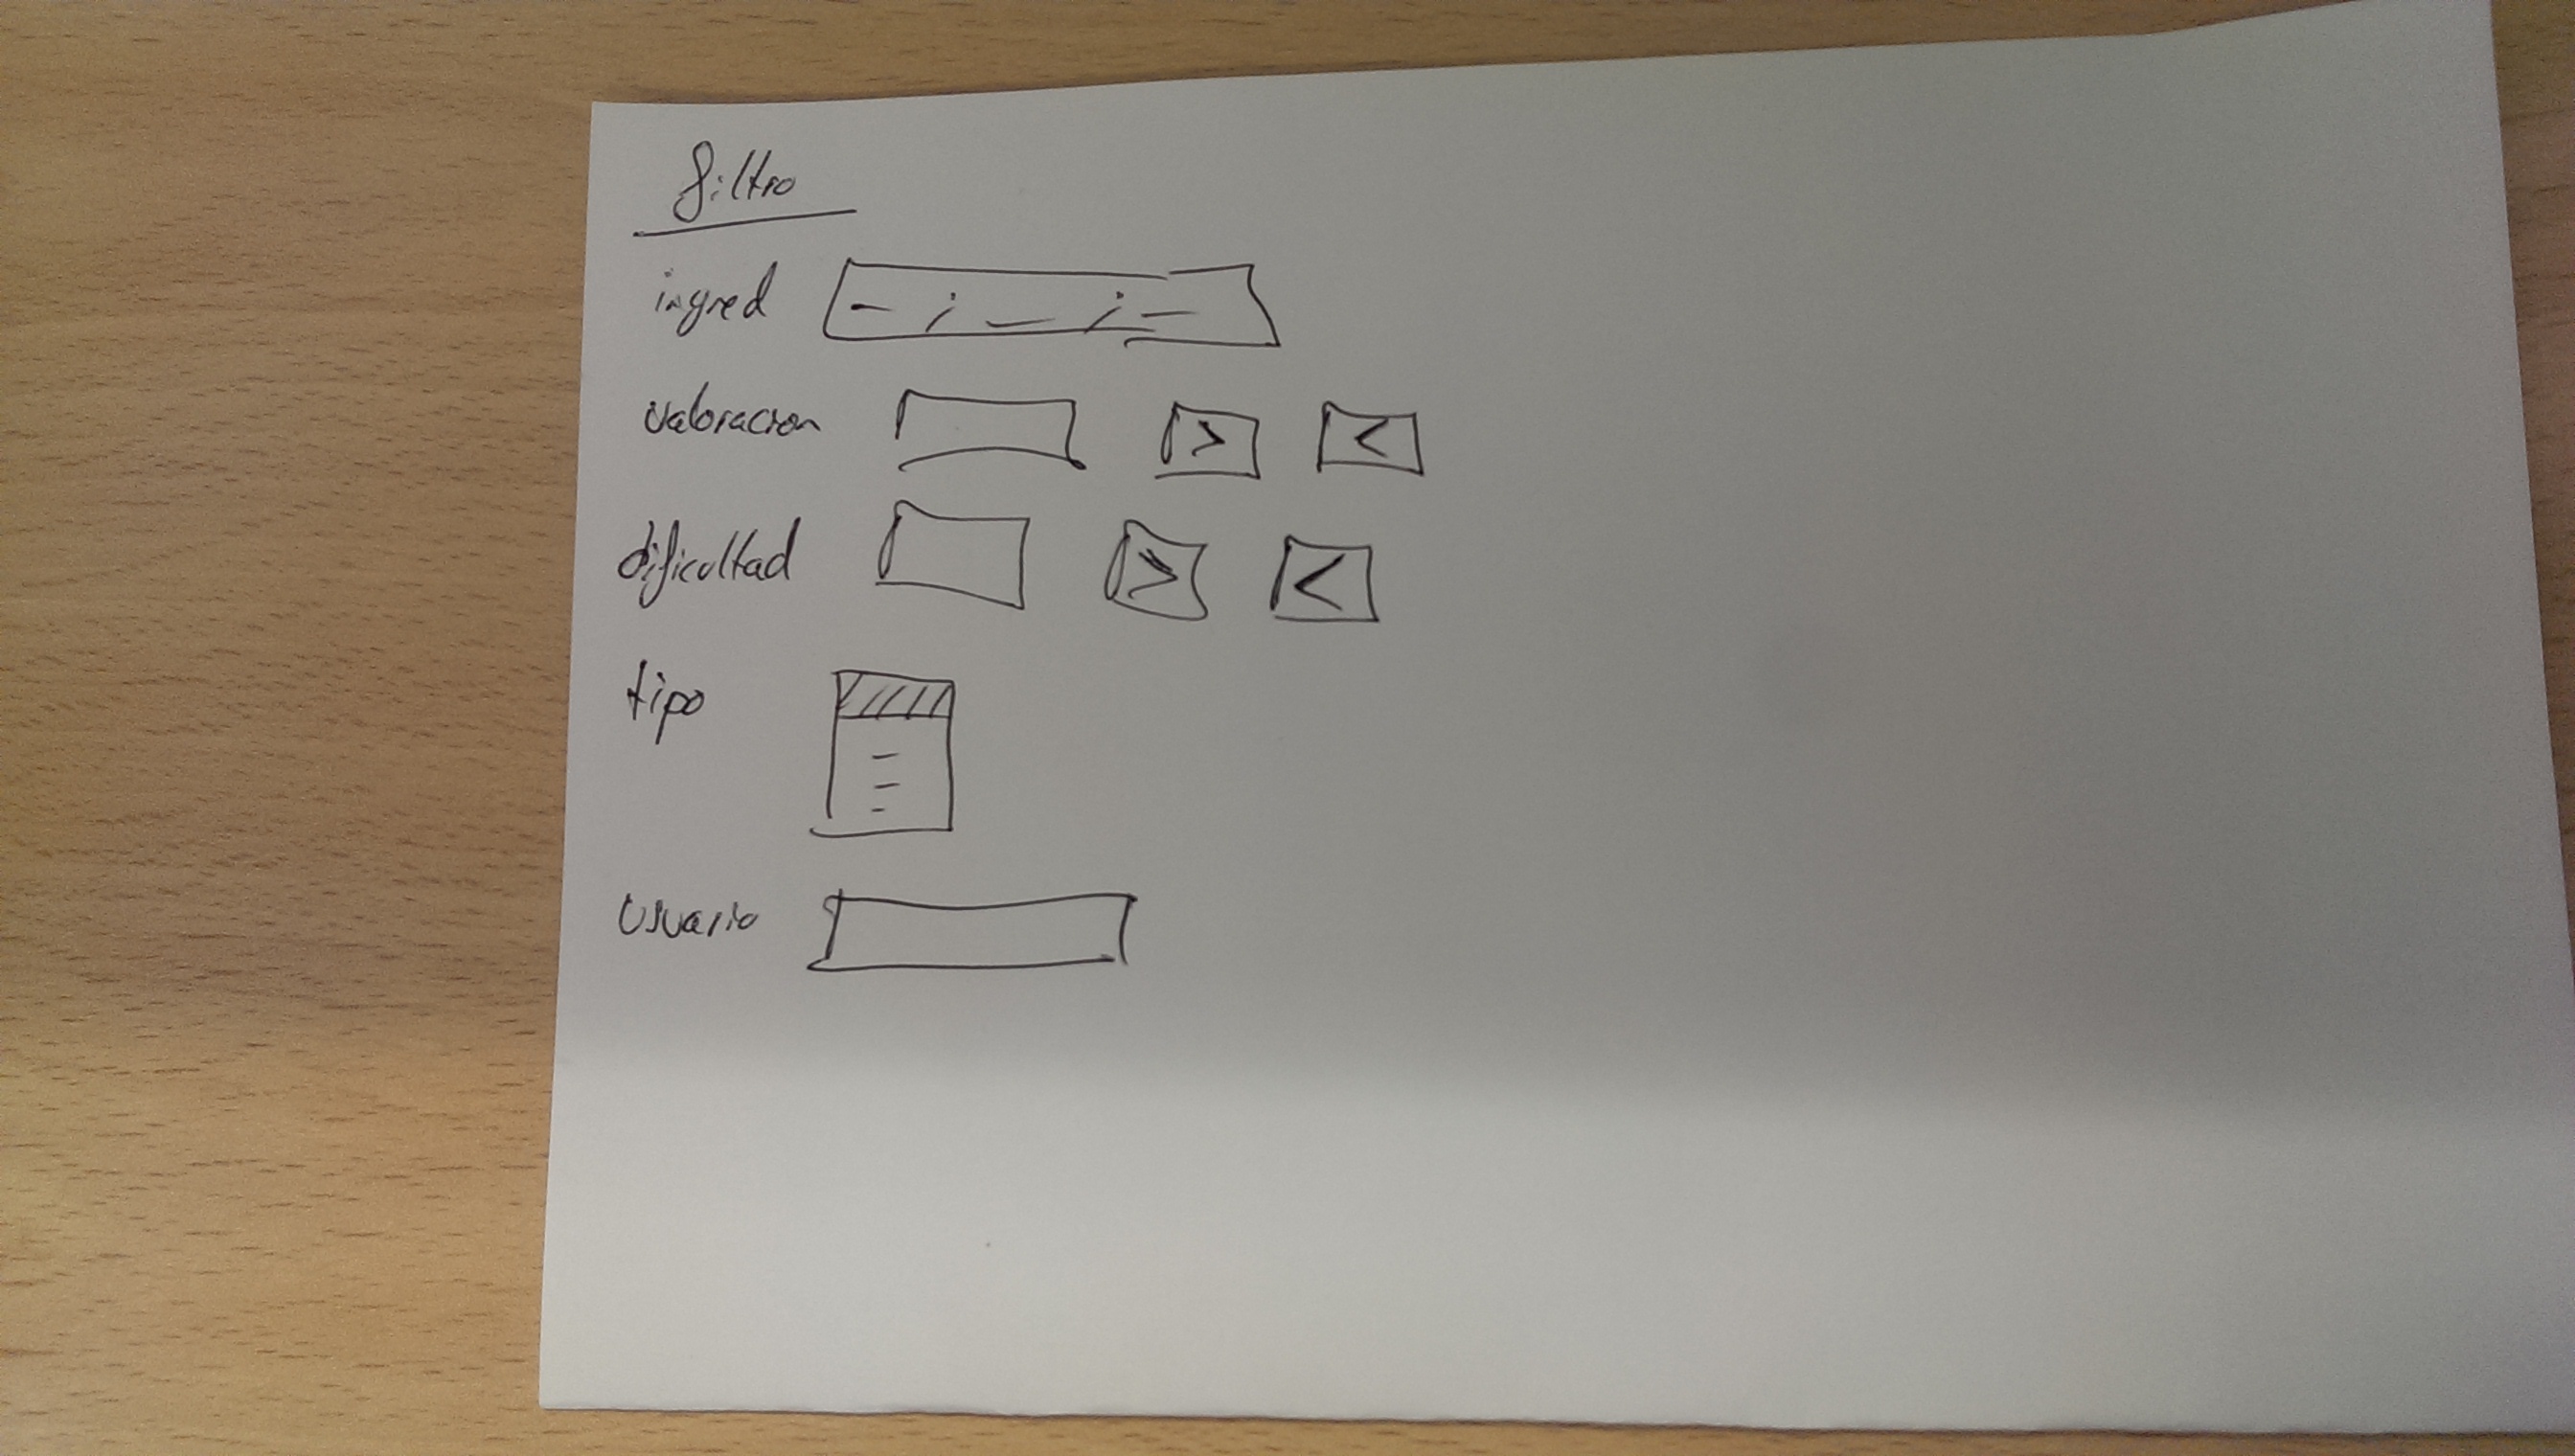 filtro
ingred - ; - ; -
valoracion > <
dificultad > <
tipo
usuario